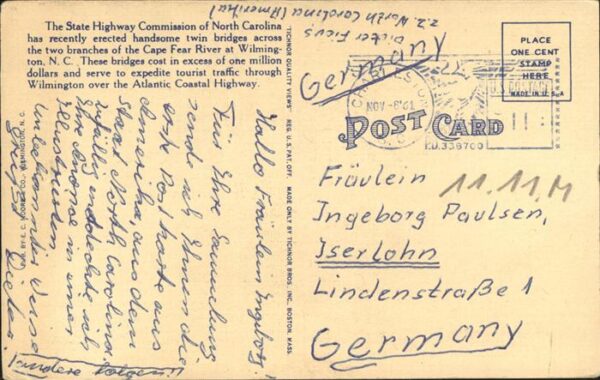 The State Highway Commission of North Carolina
has recently erected handsome twin bridges across
the two branches of the Cape Fear River at Wilming-
ton, N. C. These bridges cost in excess of one million
dollars and serve to expedite tourist traffic through
Wilmington over the Atlantic Coastal Highway.
Hallo Fräulein Ingeborg!
Für Ihre Sammlung
sende ich Ihnen die
erste Postkarte aus
Amerika, aus dem
Staat North Carolina.
Zufällig entdeckte ich
Ihre Anonce in einer
Illustrierten
unbekannter Weise
Dieter
(andere folgen!)
PUB. BY E. C. MOORE CO., WILMINGTON, N. C.
TICHNOR QUALITY VIEWS REG. U. S. PAT. OFF. MADE ONLY BY TICHNOR BROS., INC., BOSTON, MASS.
Dieter
z.Z. North Carolina (Amerika)
Germany
PLACE
ONE CENT
STAMP
HERE
MADE IN U.S.A.
NOV-8'61
U.S. POSTAGE
POST CARD
P.O.336700
11.11.M
Fräulein
Ingeborg Paulsen,
Iserlohn
Lindenstraße 1
Germany